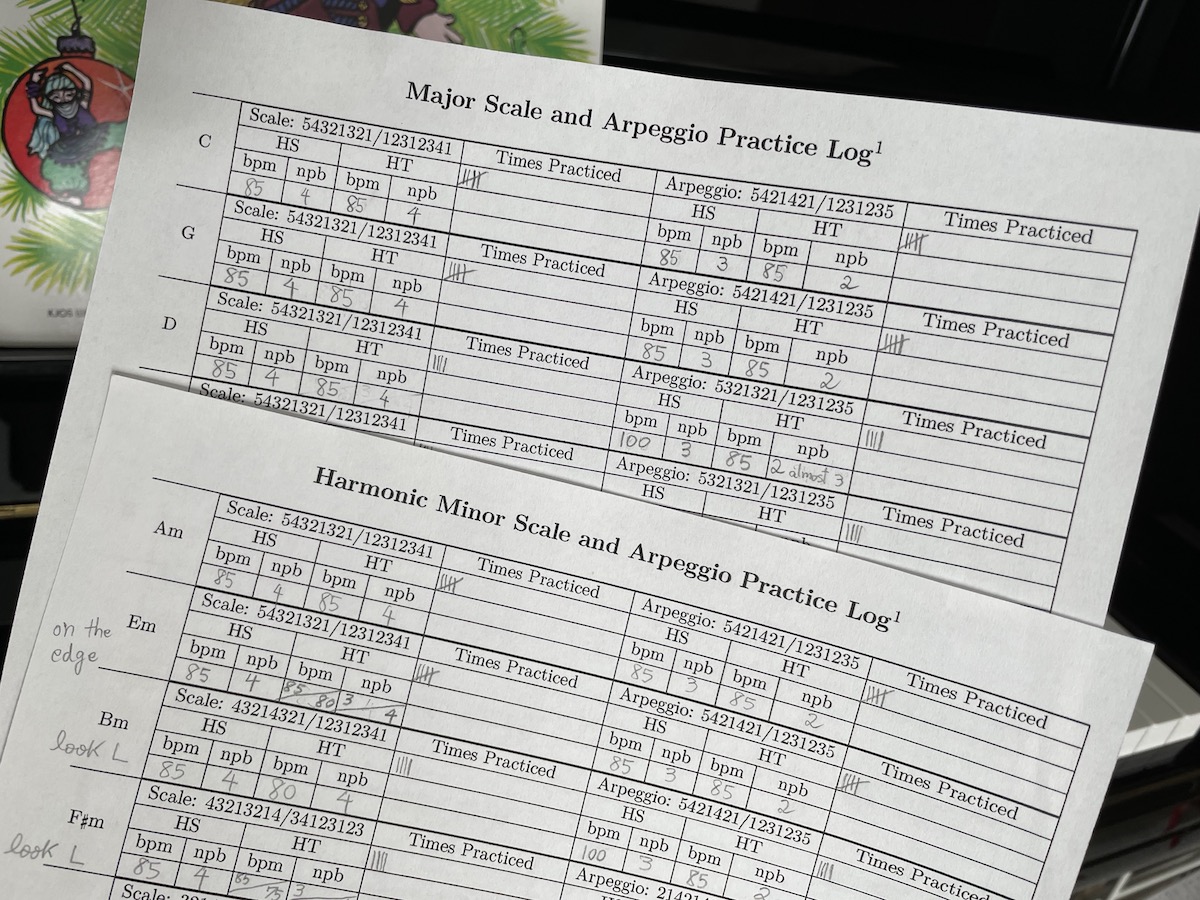 Major Scale and Arpeggio Practice Log1
C
Scale: 54321321/12312341
Times Practiced
Arpeggio: 5421421/1231235
Times Practiced
HS HT
HS HT
bpm npb bpm npb
bpm npb bpm npb
85 4 85 4
85 3 85 2
G
Scale: 54321321/12312341
Times Practiced
Arpeggio: 5421421/1231235
Times Practiced
HS HT
HS HT
bpm npb bpm npb
bpm npb bpm npb
85 4 85 4
85 3 85 2
D
Scale: 54321321/12312341
Times Practiced
Arpeggio: 5321321/1231235
Times Practiced
HS HT
HS HT
bpm npb bpm npb
bpm npb bpm npb
85 4 85 4
100 3 85 2 almost 3
Scale: 54321321/12312341
Times Practiced
Arpeggio: 5321321/1231235
Times Practiced
HS HT
Harmonic Minor Scale and Arpeggio Practice Log1
Am
Scale: 54321321/12312341
Times Practiced
Arpeggio: 5421421/1231235
Times Practiced
HS HT
HS HT
bpm npb bpm npb
bpm npb bpm npb
85 4 85 4
85 3 85 2
Em
on the
edge
Scale: 54321321/12312341
Times Practiced
Arpeggio: 5421421/1231235
Times Practiced
HS HT
HS HT
bpm npb bpm npb
bpm npb bpm npb
85 4 85 80 3 4
85 3 85 2
Bm
look L
Scale: 43214321/12312341
Times Practiced
Arpeggio: 5421421/1231235
Times Practiced
HS HT
HS HT
bpm npb bpm npb
bpm npb bpm npb
85 4 80 4
100 3 85 2
F♯m
look L
Scale: 43213214/34123123
Times Practiced
Arpeggio:
Times Practiced
HS HT
bpm npb bpm npb
85 4 85 75 3
Scale:
KJOS